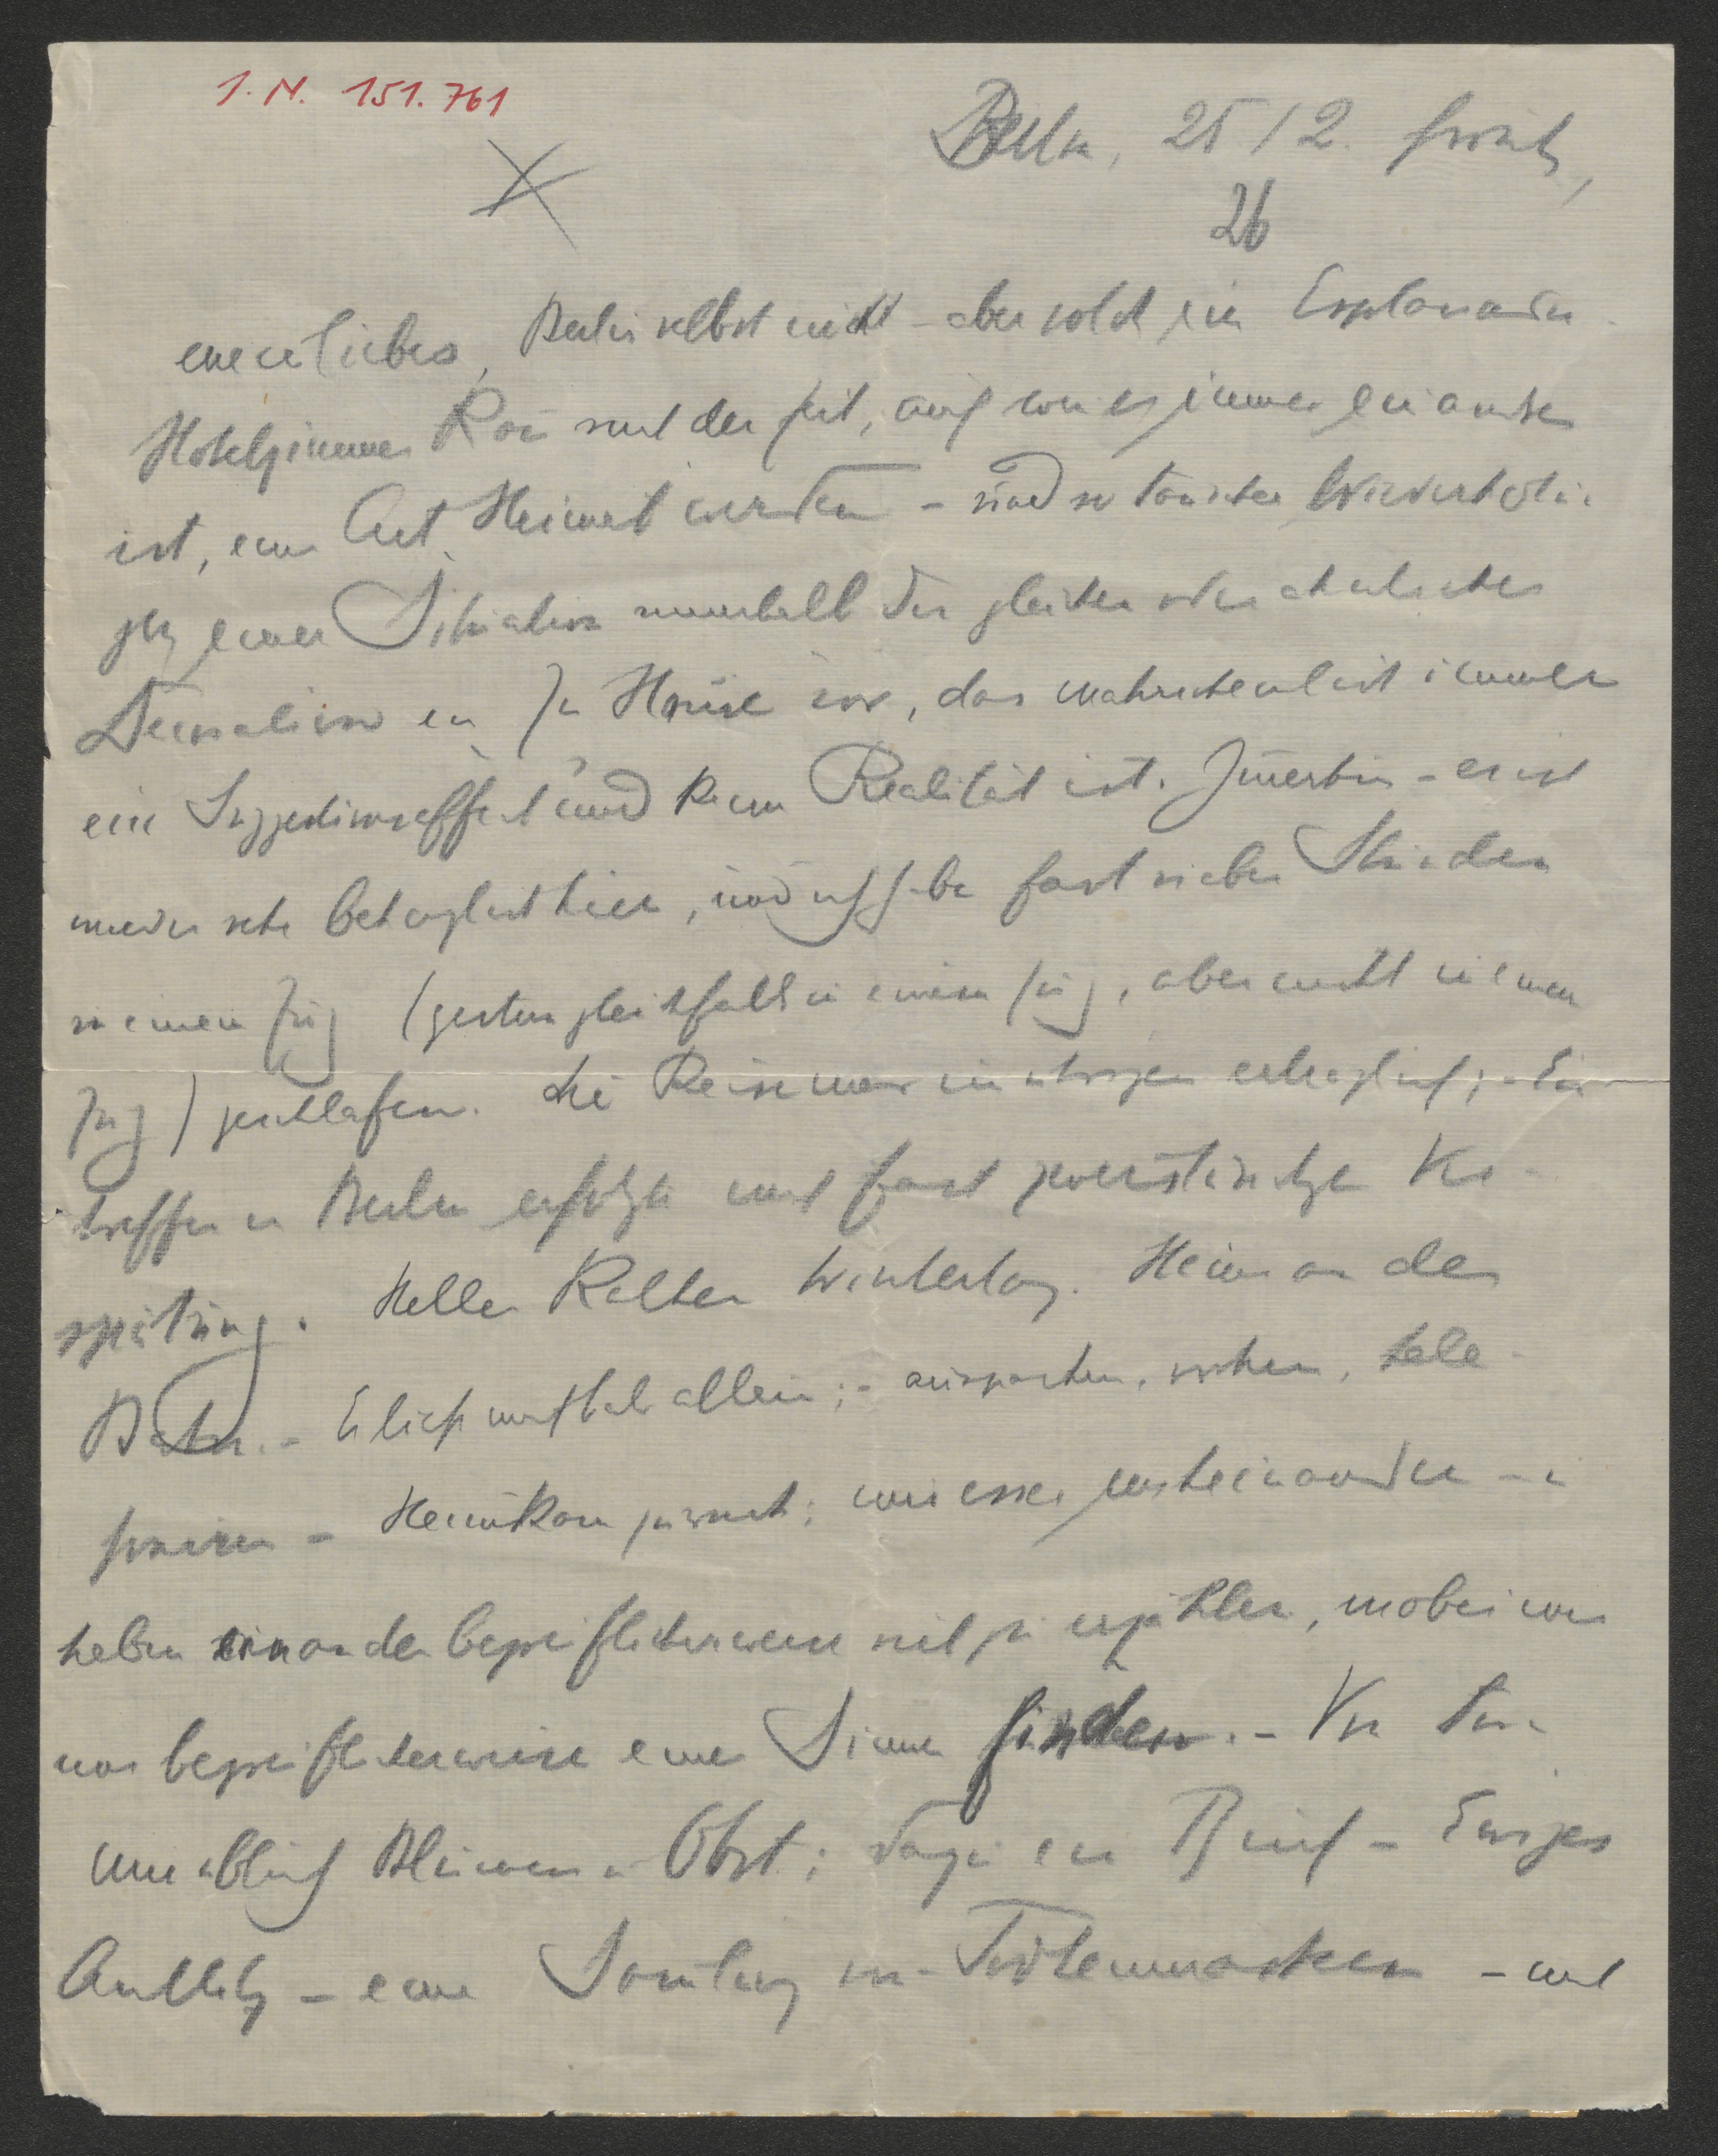 I. N. 151.761
Berlin, 25/2. früh,
26
mein liebes, Berlin selbst nicht – aber solch ein Esplanade-
Hotelzimmer kann mit der Zeit, auch wenn es immer ein andres
ist, eine Art Heimat werden – und so täuschen Wiederholun-
gen einer Situation innerhalb der gleichen oder ähnlichen
Decoration ein Zu Hause vor, das wahrscheinlich immer
ein Suggestionseffect und keine Realität ist. Immerhin – es ist
wieder sehr behaglich hier, und ich habe fast sieben Stunden
in einem Zug (gestern gleichfalls in einem Zug, aber nicht in einem
Zug) geschlafen. Die Reise war im übrigen erträglich; – Ein-
treffen in Berlin erfolgte mit fast zweistündiger Ver-
spätung. Heller kalter Wintertag. Heini an der
Bahn. – Er ließ mich bald allein; – auspacken, ruhen, tele-
foniren – Heini kam zurück; wir essen miteinander –
haben einander begreiflicherweise viel zu erzählen, wobei wir
uns begreiflicherweise in einem Sinne finden. – Von
wie üblich Blumen u Obst; dazu ein Buch – Ewiges
Antlitz – eine Samlung von Todtenmasken – mit